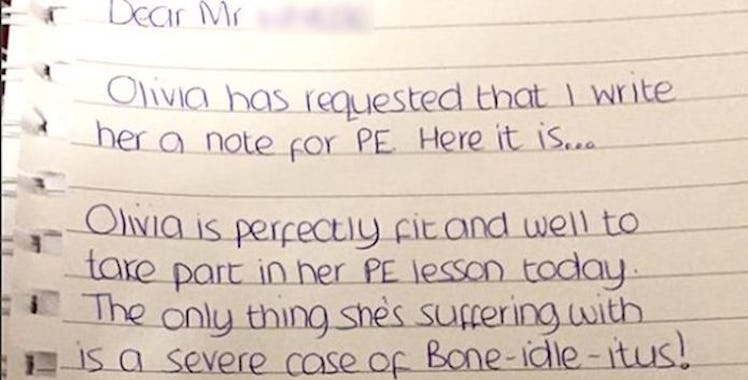 Dear Mr
Olivia has requested that I write
her a note for PE. Here it is...
Olivia is perfectly fit and well to
take part in her PE lesson today.
The only thing she's suffering with
is a severe case of Bone-idle-itus!